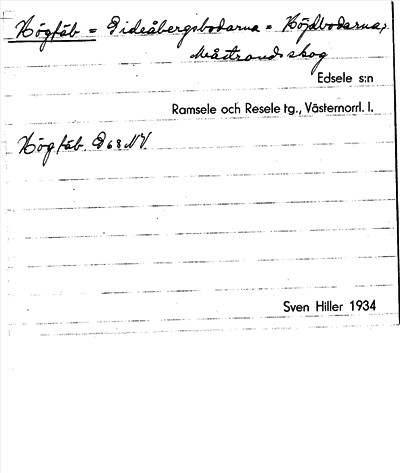 Högfäb = Gideåbergsbodarna = Höjdbodarna,
skog
Edsele s:n
Ramsele och Resele tg., Västernorrl. l.
Högfäb. G68 NV.
Sven Hiller 1934